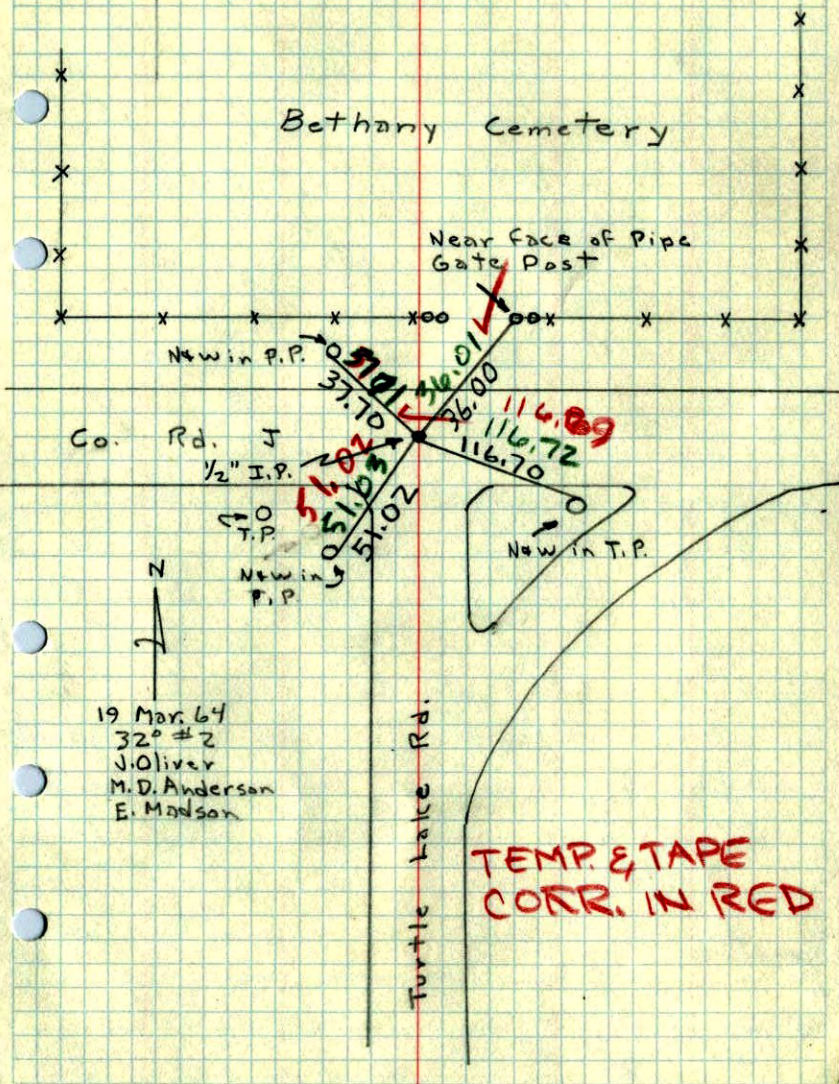 Bethany Cemetery
Near Face of Pipe
Gate Post
N&W in P.P.
37.70
36.01
36.00
116.72
116.70
Co. Rd. J
1/2" I.P.
51.02
51.03
51.02
T.P.
N&W in
P.P.
N&W in T.P.
N
19 Mar. 64
32° #2
J. Oliver
M.D. Anderson
E. Madson
Turtle Lake Rd.
TEMP. & TAPE
CORR. IN RED